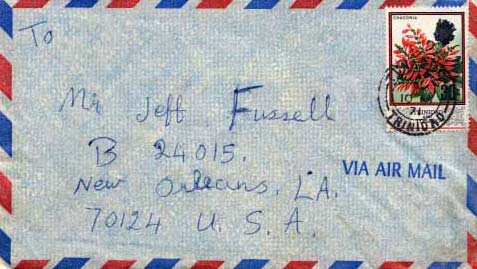 To
CHACONIA
Mr Jeff Fussell
B 24015.
New Orleans, LA.
VIA AIR MAIL
70124 U. S. A.
TRINIDAD